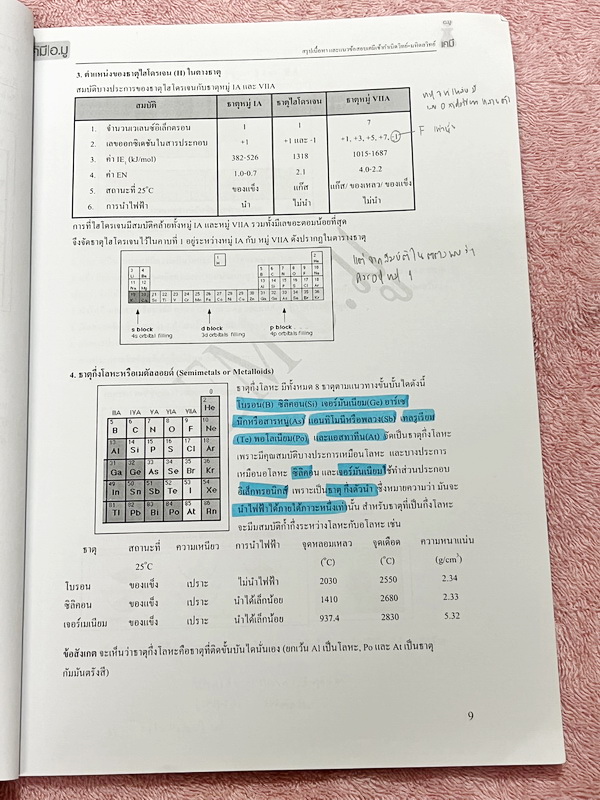 เคมี อ.มู
สรุปเนื้อหาและแนวข้อสอบเคมีเข้ากำเนิดวิทย์-มหิดลวิทย์
เคมี
3. ตำแหน่งของธาตุไฮโดรเจน (H) ในตางธาตุ
สมบัติบางประการของธาตุไฮโดรเจนกับธาตุหมู่ IA และ VIIA
สมบัติ ธาตุหมู่ IA ธาตุไฮโดรเจน ธาตุหมู่ VIIA
1. จำนวนเวเลนซ์อิเล็กตรอน 1 1 7
2. เลขออกซิเดชันในสารประกอบ +1 +1 และ -1 +1, +3, +5, +7, -1
F เท่านั้น
3. ค่า IE₁ (kJ/mol) 382-526 1318 1015-1687
4. ค่า EN 1.0-0.7 2.1 4.0-2.2
5. สถานะที่ 25°C ของแข็ง แก๊ส แก๊ส/ ของเหลว/ ของแข็ง
6. การนำไฟฟ้า นำ ไม่นำ ไม่นำ
การที่ไฮโดรเจนมีสมบัติคล้ายทั้งหมู่ IA และหมู่ VIIA รวมทั้งมีเลขอะตอมน้อยที่สุด
จึงจัดธาตุไฮโดรเจนไว้ในคาบที่ 1 อยู่ระหว่างหมู่ IA กับ หมู่ VIIA ดังปรากฏในตารางธาตุ
s block d block p block
4s orbital filling 3d orbitals filling 4p orbitals filling
4. ธาตุกึ่งโลหะหรือเมตัลลอยด์ (Semimetals or Metalloids)
ธาตุกึ่งโลหะ มีทั้งหมด 8 ธาตุตามแนวทางขั้นบันไดดังนี้
โบรอน(B) ซิลิคอน(Si) เจอร์มันเนียม(Ge) อาร์เซ
นิกหรือสารหนู(As) แอนทิโมนีหรือพลวง(Sb) เทลรูเรียม
(Te) พอโลเนียม(Po) และแอสทาทีน(At) จัดเป็นธาตุกึ่งโลหะ
เพราะมีคุณสมบัติบางประการเหมือนโลหะ และบางประการ
เหมือนอโลหะ ซิลิคอน และเจอร์มันเนียมใช้ทำส่วนประกอบ
อิเล็กทรอนิกส์ เพราะเป็นธาตุ กึ่งตัวนำ ซึ่งหมายความว่า มันจะ
นำไฟฟ้าได้ภายใต้ภาวะหนึ่งเท่านั้น สำหรับธาตุที่เป็นกึ่งโลหะ
จะมีสมบัติก้ำกึ่งระหว่างโลหะกับอโลหะ เช่น
0
IIIA IVA VA VIA VIIA 2 He
5 B 6 C 7 N 8 O 9 F 10 Ne
13 Al 14 Si 15 P 16 S 17 Cl 18 Ar
31 Ga 32 Ge 33 As 34 Se 35 Br 36 Kr
49 In 50 Sn 51 Sb 52 Te 53 I 54 Xe
81 Tl 82 Pb 83 Bi 84 Po 85 At 86 Rn
ธาตุ สถานะที่ ความเหนียว การนำไฟฟ้า จุดหลอมเหลว จุดเดือด ความหนาแน่น
25°C (°C) (°C) (g/cm³)
โบรอน ของแข็ง เปราะ ไม่นำไฟฟ้า 2030 2550 2.34
ซิลิคอน ของแข็ง เปราะ นำได้เล็กน้อย 1410 2680 2.33
เจอร์เมเนียม ของแข็ง เปราะ นำได้เล็กน้อย 937.4 2830 5.32
ข้อสังเกต จะเห็นว่าธาตุกึ่งโลหะคือธาตุที่ติดขั้นบันไดนั่นเอง (ยกเว้น Al เป็นโลหะ, Po และ At เป็นธาตุ
กัมมันตรังสี)
9